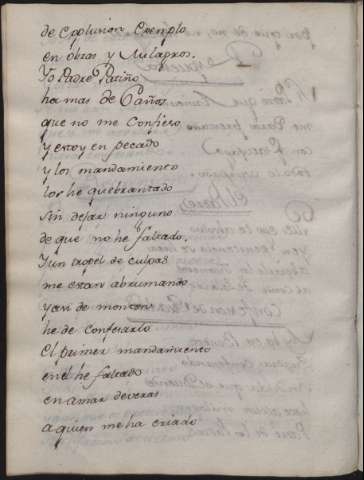 de Cpolucion Exemplo
en obras y Milagros.
Yo Padre Patiño
ha mas de 6 años
que no me Confieso
y estoy en pecado
y los mandamiento
los he quebrantado
sin dejar ninguno
de que no he faltado.
Y un tropel de culpas
me estan abrumando
y asi de monton
he de confesarlo
el primer mandamiento
en el he faltado
en amar deveras
a quien me ha criado